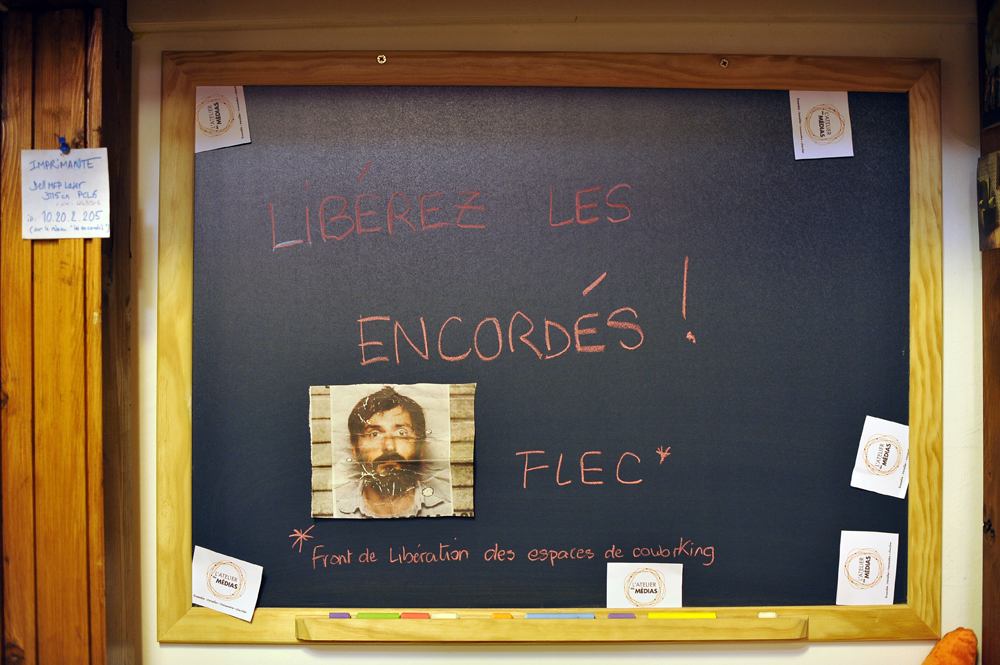 L'ATELIER
DES MÉDIAS
L'ATELIER
DES MÉDIAS
IMPRIMANTE
Dell MFP Laser
3115cn PCL6
ip. 10.20.2.205
LIBÉREZ LES
ENCORDÉS !
FLEC*
* Front de Libération des espaces de coworking
L'ATELIER
DES MÉDIAS
L'ATELIER
DES MÉDIAS
L'ATELIER
DES MÉDIAS
L'ATELIER
DES MÉDIAS